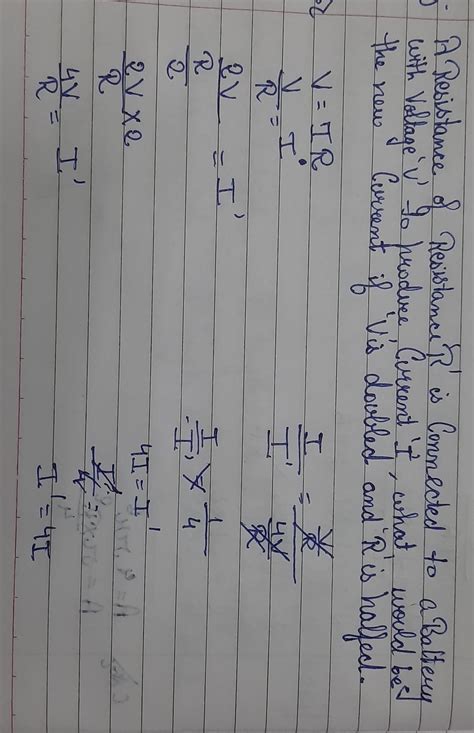 A Resistance of Resistance 'R' is Connected to a Battery
with Voltage 'V' to produce Current 'I', what would be
the new Current if 'V' is doubled and 'R' is halfed.
V = IR
V/R = I
2V/(R/2) = I'
2V/R × 2
4V/R = I'
I/I' = (V/R)/(4V/R)
I/I' × 1/4
4I = I'
I' = 4I